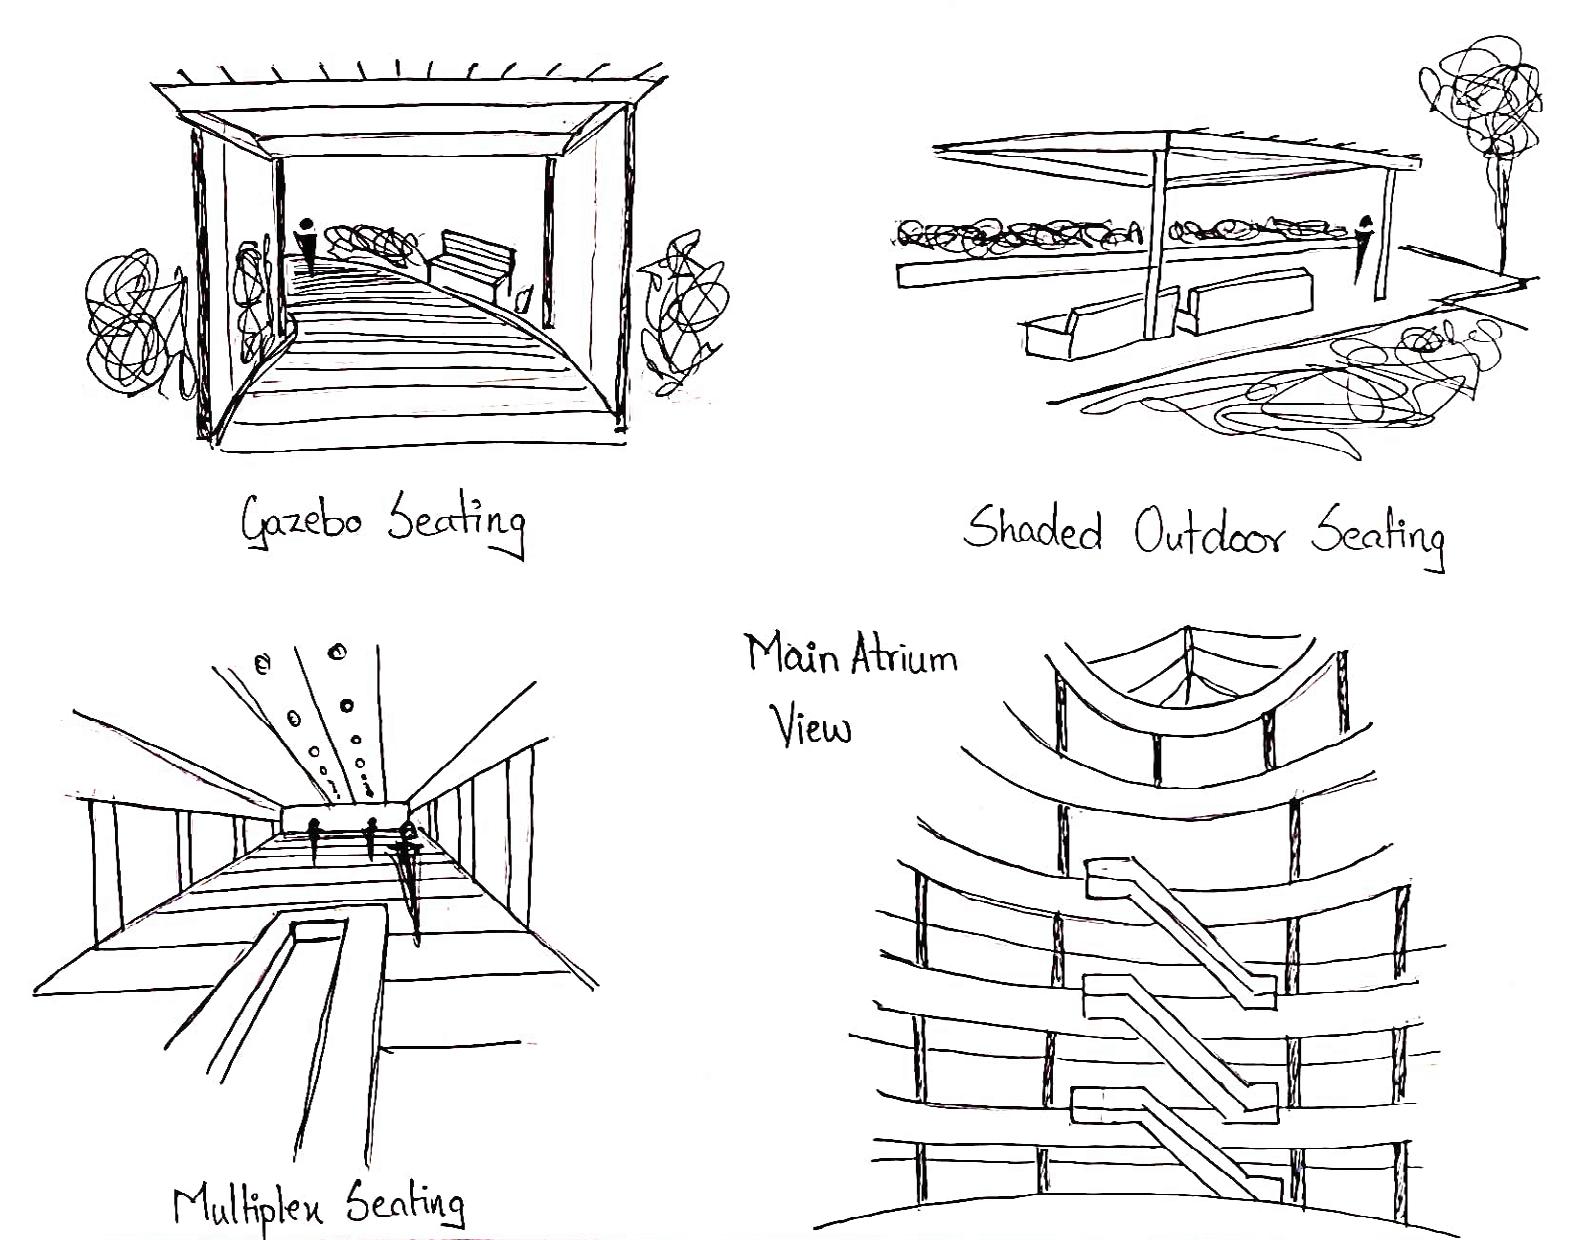 Gazebo Seating
Shaded Outdoor Seating
Main Atrium
View
Multiplex Seating